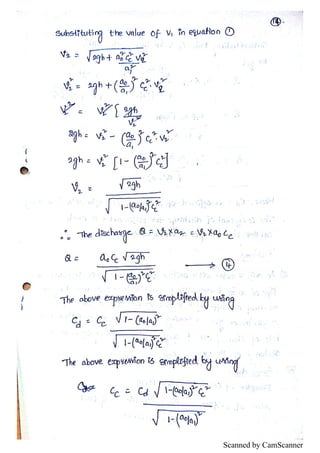 14
substituting the value of V₁ in equation ①
V₂ = √(2gh + a₀² C_c² V₂² / a₁²)
V₂² = 2gh + (a₀/a₁)² C_c² . V₂²
2gh = V₂² - (a₀/a₁)² C_c² . V₂²
2gh = V₂² [1 - (a₀/a₁)² C_c²]
V₂ = √2gh / √(1-(a₀/a₁)² C_c²)
∴ The discharge Q = V₂ × a₂ = V₂ × a₀ C_c
Q = a₀ C_c √2gh / √(1-(a₀/a₁)² C_c²) → ⑭
The above expression is simplified by using
C_d = C_c √(1-(a₀/a₁)²) / √(1-(a₀/a₁)² C_c²)
The above expression is simplified by using
C_c = C_d √(1-(a₀/a₁)² C_c²) / √(1-(a₀/a₁)²)
Scanned by CamScanner